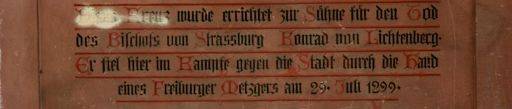 Kreuz wurde errichtet zur Sühne für den Tod
des Bischofs von Strassburg Konrad von Lichtenberg.
Er fiel hier im Kampfe gegen die Stadt durch die Hand
eines Freiburger Metzgers am 29. Juli 1299.